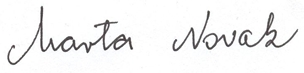 Marta Novak